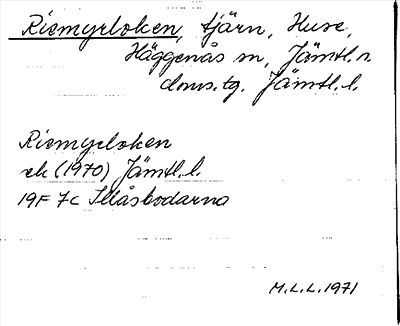 Rismyrloken, tjärn, Huse,
Häggenås sn, Jämtl. n.
doms.tg. Jämtl. l.
Rismyrloken
ek (1970) Jämtl. l.
19F 7c Slåsbodarna
M.L.L. 1971